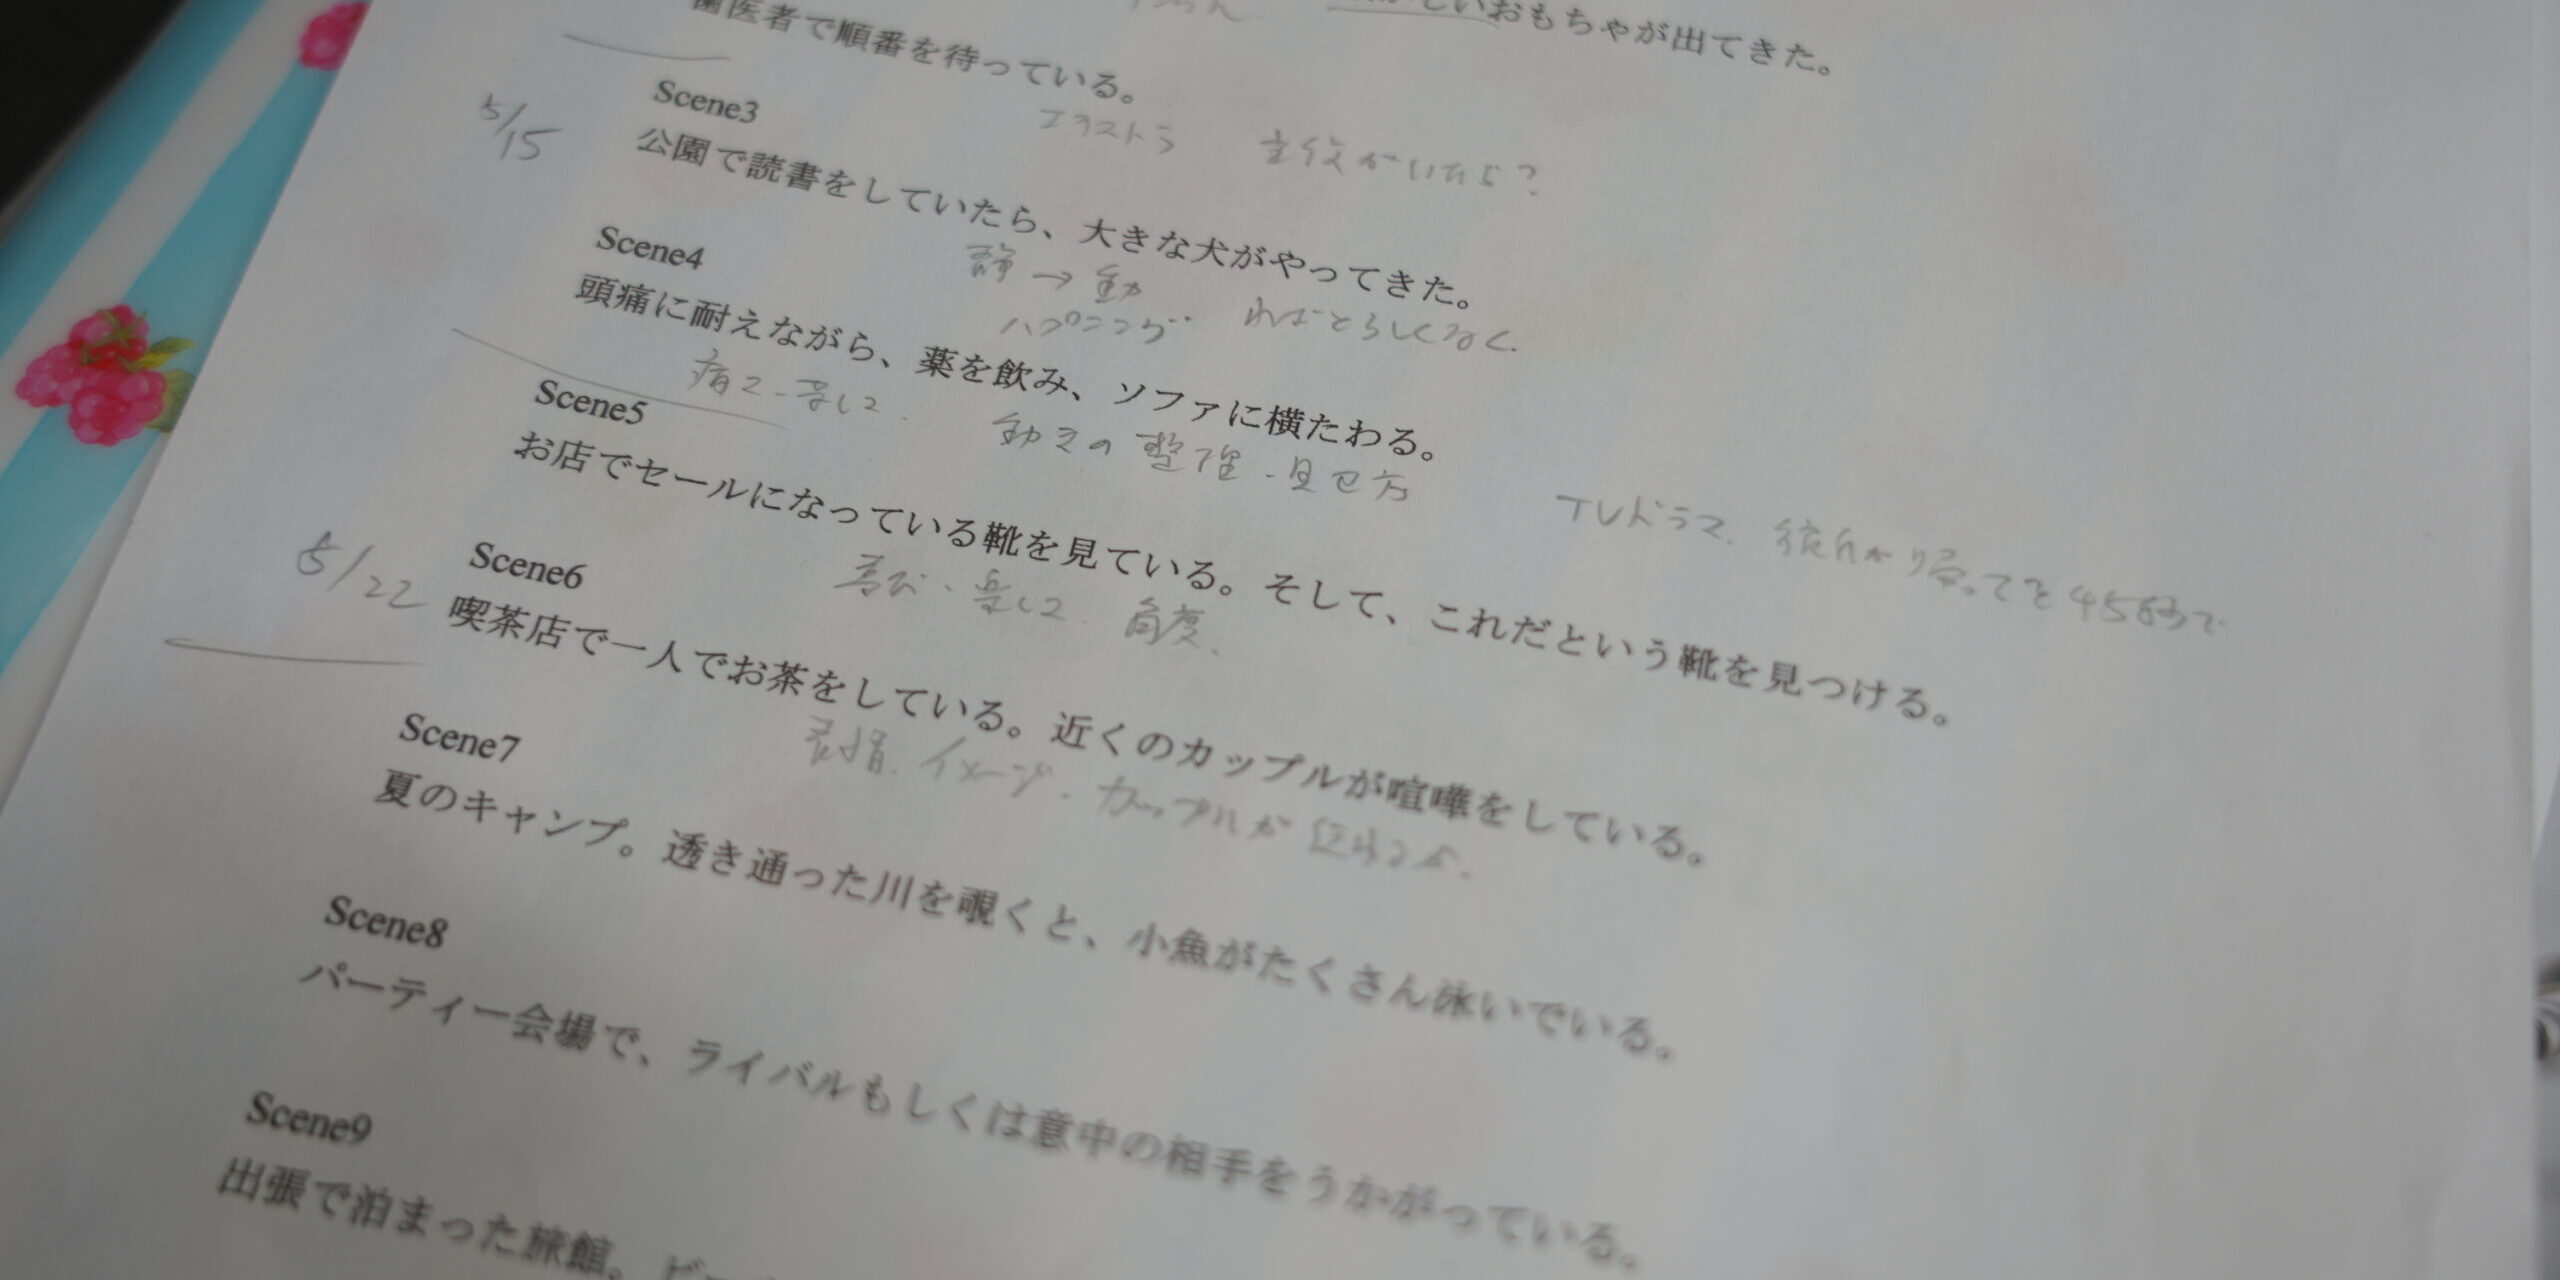 おもちゃが出てきた。
歯医者で順番を待っている。
エクストラ 主役がいたら?
Scene3
5/15
公園で読書をしていたら、大きな犬がやってきた。
静→動
ハプニング わざとらしくなく.
Scene4
頭痛に耐えながら、薬を飲み、ソファに横たわる。
痛さ・苦しさ
動きの整理・見せ方
TVドラマ.
Scene5
お店でセールになっている靴を見ている。そして、これだという靴を見つける。
喜び・楽しさ 角度.
5/22
Scene6
喫茶店で一人でお茶をしている。近くのカップルが喧嘩をしている。
表情.イメージ.カップルが
Scene7
夏のキャンプ。透き通った川を覗くと、小魚がたくさん泳いでいる。
Scene8
パーティー会場で、ライバルもしくは意中の相手をうかがっている。
Scene9
出張で泊まった旅館。